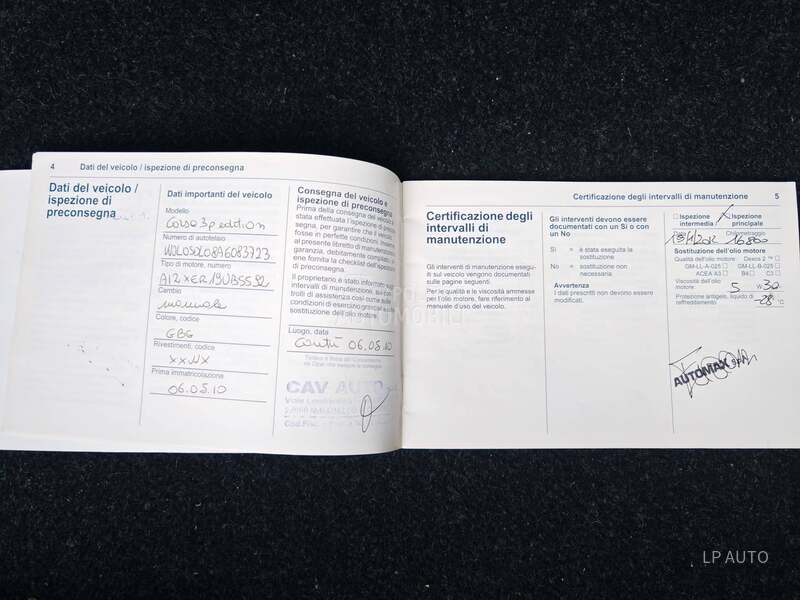 4 Dati del veicolo / ispezione di preconsegna
Dati del veicolo /
ispezione di
preconsegna
Dati importanti del veicolo
Modello
Corsa 3p edition
Numero di autotelaio
W0L0SDL08A6083723
Tipo di motore, numero
A12XER
Cambio
manuale
Colore, codice
GBG
Rivestimenti, codice
Prima immatricolazione
06.05.10
Consegna del veicolo e
ispezione di preconsegna
Prima della consegna del veicolo è
stata effettuata l'ispezione di precon
segna, per garantire che il veicolo
fosse in perfette condizioni. Insieme
al presente libretto di manutenzione
garanzia, debitamente compilato,
ene fornita la checklist dell'ispezion
di preconsegna.
Il proprietario è stato informato sugli
intervalli di manutenzione, sui con-
trolli di assistenza così come sulla
condizioni di garanzia e intervallo
sostituzione dell'olio motore.
Luogo, data
Cantù 06.05.10
CAV AUTO
Certificazione degli intervalli di manutenzione 5
Certificazione degli
intervalli di
manutenzione
Gli interventi di manutenzione esegui-
ti sul veicolo vengono documentati
sulle pagine seguenti.
Per le qualità e le viscosità ammesse
per l'olio motore, fare riferimento al
manuale d'uso del veicolo.
Gli interventi devono essere
documentati con un Sì o con
un No
Sì = è stata eseguita la
sostituzione
No = sostituzione non
necessaria
Avvertenza
I dati prescritti non devono essere
modificati.
Ispezione
intermedia /
Ispezione
principale
Data
Chilometraggio
16800
Sostituzione dell'olio motore
Qualità dell'olio motore: Dexos 2 ™
GM-LL-A-025 GM-LL-B-025
ACEA A3 B4 C3
Viscosità dell'olio
motore: 5 W 30
Protezione antigelo, liquido di
raffreddamento: -28 °C
AUTOMAX SpA
LP AUTO